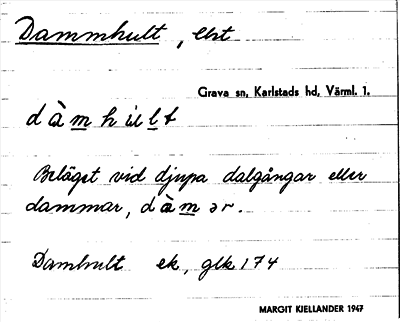 Dammhult, ebst
Grava sn, Karlstads hd, Värml. l.
dàmhult
Beläget vid djupa dalgångar eller
dammar, dàmər.
Damhult ek, glk 174
MARGIT KIELLANDER 1947